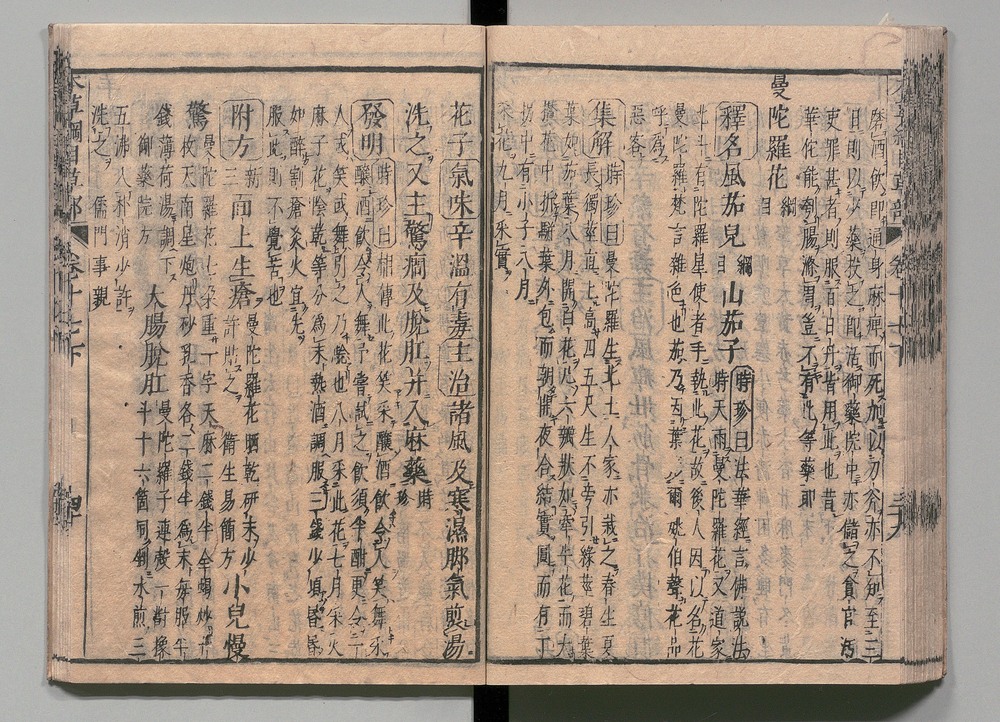 磨酒飲即通身麻痺而死加以刀斧亦不知至三
日則以少藥投之即活御藥院中亦儲之貪官污
吏罪甚者則服百日丹皆用此也昔
華佗能刳腸滌胃豈不有此等藥耶
曼陀羅花 綱目
釋名風茄兒 綱目 山茄子 時珍曰法華經言佛說法
時天雨曼陀羅花又道家
北斗有陀羅星使者手執此花故後人因以名花
曼陀羅梵言雜色也茄乃因葉形爾姚伯聲花品
呼為
惡客
集解 時珍曰曼陀羅生北土人家亦栽之春生夏
長獨莖直上高四五尺生不旁引綠莖碧葉
葉如茄葉八月開白花凡六瓣狀如牽牛花而大
攢花中折騈葉外包而朝開夜合結實圓而有丁
拐中有小子八月
采花九月采實
花子氣味辛溫有毒主治諸風及寒濕脚氣煎湯
洗之又主驚癇及脫肛并入麻藥 時珍
發明 時珍曰相傳此花笑采釀酒飲令人笑舞采
釀酒飲令人舞予嘗試之飲須半酣更令一
人或笑或舞引之乃驗也八月采此花七月采火
麻子花陰乾等分為末熱酒調服三錢少頃昏昏
如醉割瘡灸火宜先
服此則不覺苦也
附方 新三 面上生瘡 曼陀羅花晒乾研末少
許貼之 衛生易簡方 小兒慢
驚 曼陀羅花七朵重一字天麻二錢半全蝎炒十
枚天南星炮丹砂乳香各二錢半為末每服半
錢薄荷湯調下
御藥院方 大腸脫肛 曼陀羅子連殼一對橡
斗十六箇同剉水煎三
五沸入朴消少許
洗之 儒門事親